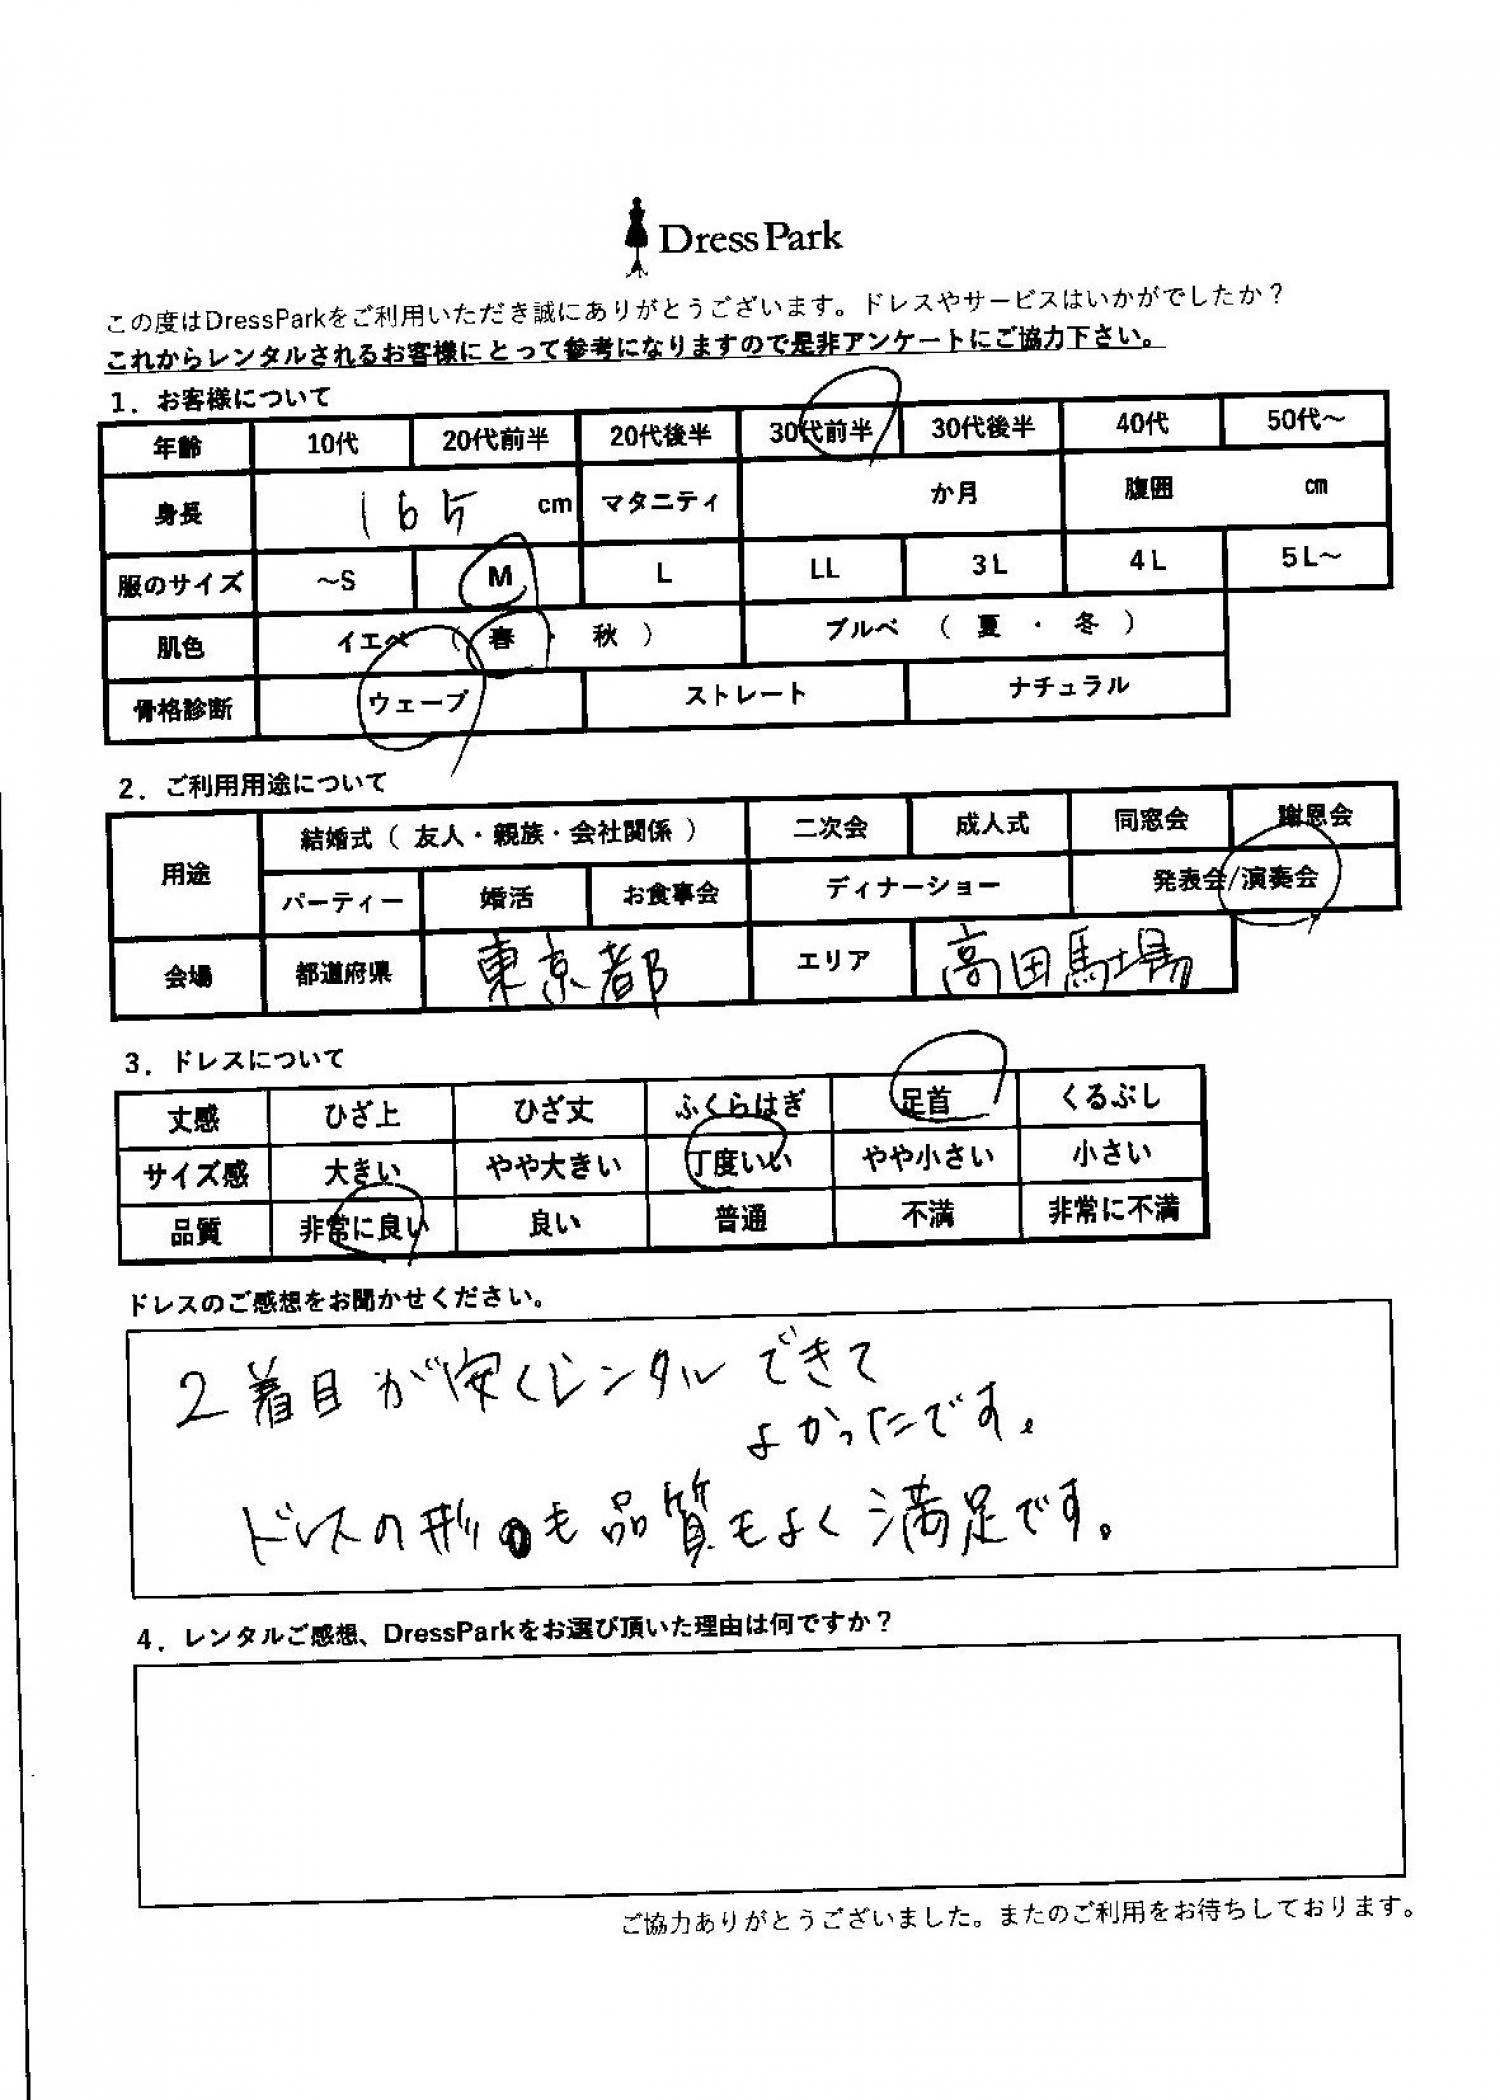 Dress Park
この度はDressParkをご利用いただき誠にありがとうございます。ドレスやサービスはいかがでしたか？
これからレンタルされるお客様にとって参考になりますので是非アンケートにご協力下さい。
1．お客様について
年齢 10代 20代前半 20代後半 30代前半 30代後半 40代 50代～
身長 165 cm マタニティ か月 腹囲 cm
服のサイズ ～S M L LL 3L 4L 5L～
肌色 イエベ （ 春 ・ 秋 ） ブルベ （ 夏 ・ 冬 ）
骨格診断 ウェーブ ストレート ナチュラル
2．ご利用用途について
用途 結婚式（ 友人・親族・会社関係 ） 二次会 成人式 同窓会 謝恩会
パーティー 婚活 お食事会 ディナーショー 発表会/演奏会
会場 都道府県 東京都 エリア 高田馬場
3．ドレスについて
丈感 ひざ上 ひざ丈 ふくらはぎ 足首 くるぶし
サイズ感 大きい やや大きい 丁度いい やや小さい 小さい
品質 非常に良い 良い 普通 不満 非常に不満
ドレスのご感想をお聞かせください。
2着目が安くレンタルできて
よかったです。
ドレスの形も品質もよく満足です。
4．レンタルご感想、DressParkをお選び頂いた理由は何ですか？
ご協力ありがとうございました。またのご利用をお待ちしております。